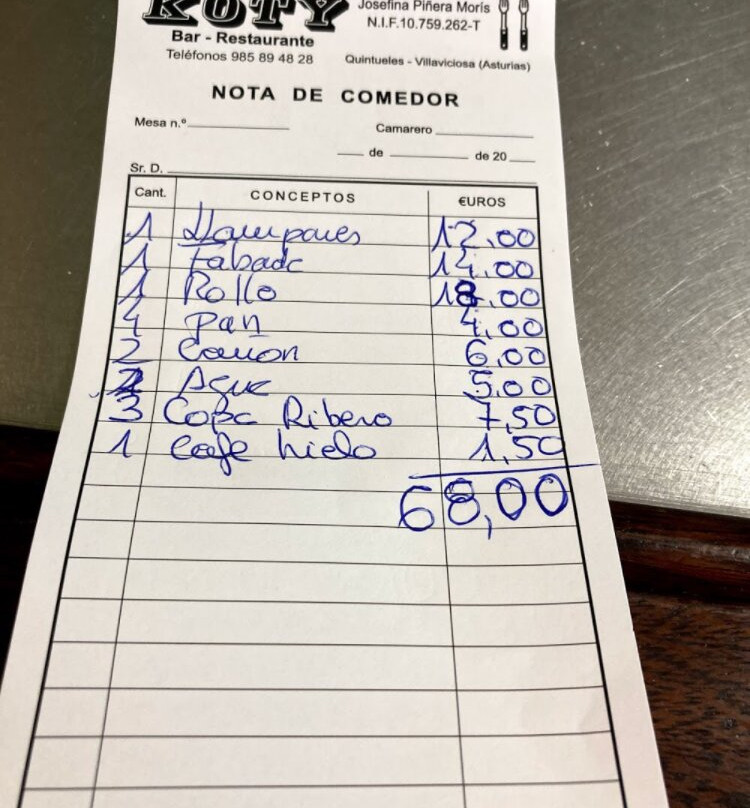 KOTY
Bar - Restaurante
Teléfonos 985 89 48 28
Josefina Piñera Morís
N.I.F.10.759.262-T
Quintueles - Villaviciosa (Asturias)
NOTA DE COMEDOR
Mesa n.º
Camarero
de de 20
Sr. D.
Cant. CONCEPTOS €UROS
1 Llampares 12.00
1 Fabada 14.00
1 Rollo 18.00
4 Pan 4.00
2 6.00
2 Agua 5.00
3 Copa Ribero 7,50
1 Cafe hielo 1,50
68,00